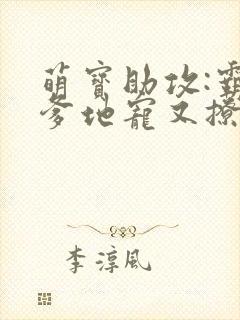 萌寶助攻:霸
爹地寵又撩
李淳风